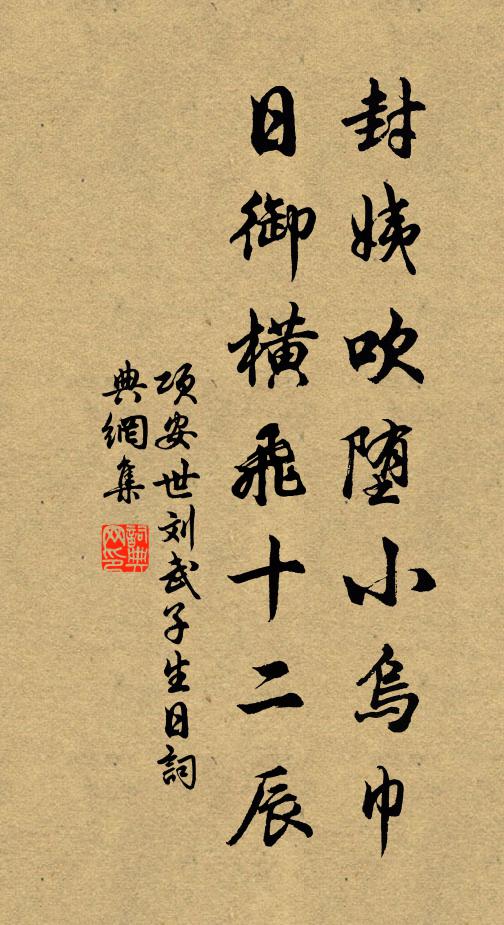 封姨吹堕小烏巾
日御橫飛十二辰
項安世刘武子生日詞
典網集
詞典
网印